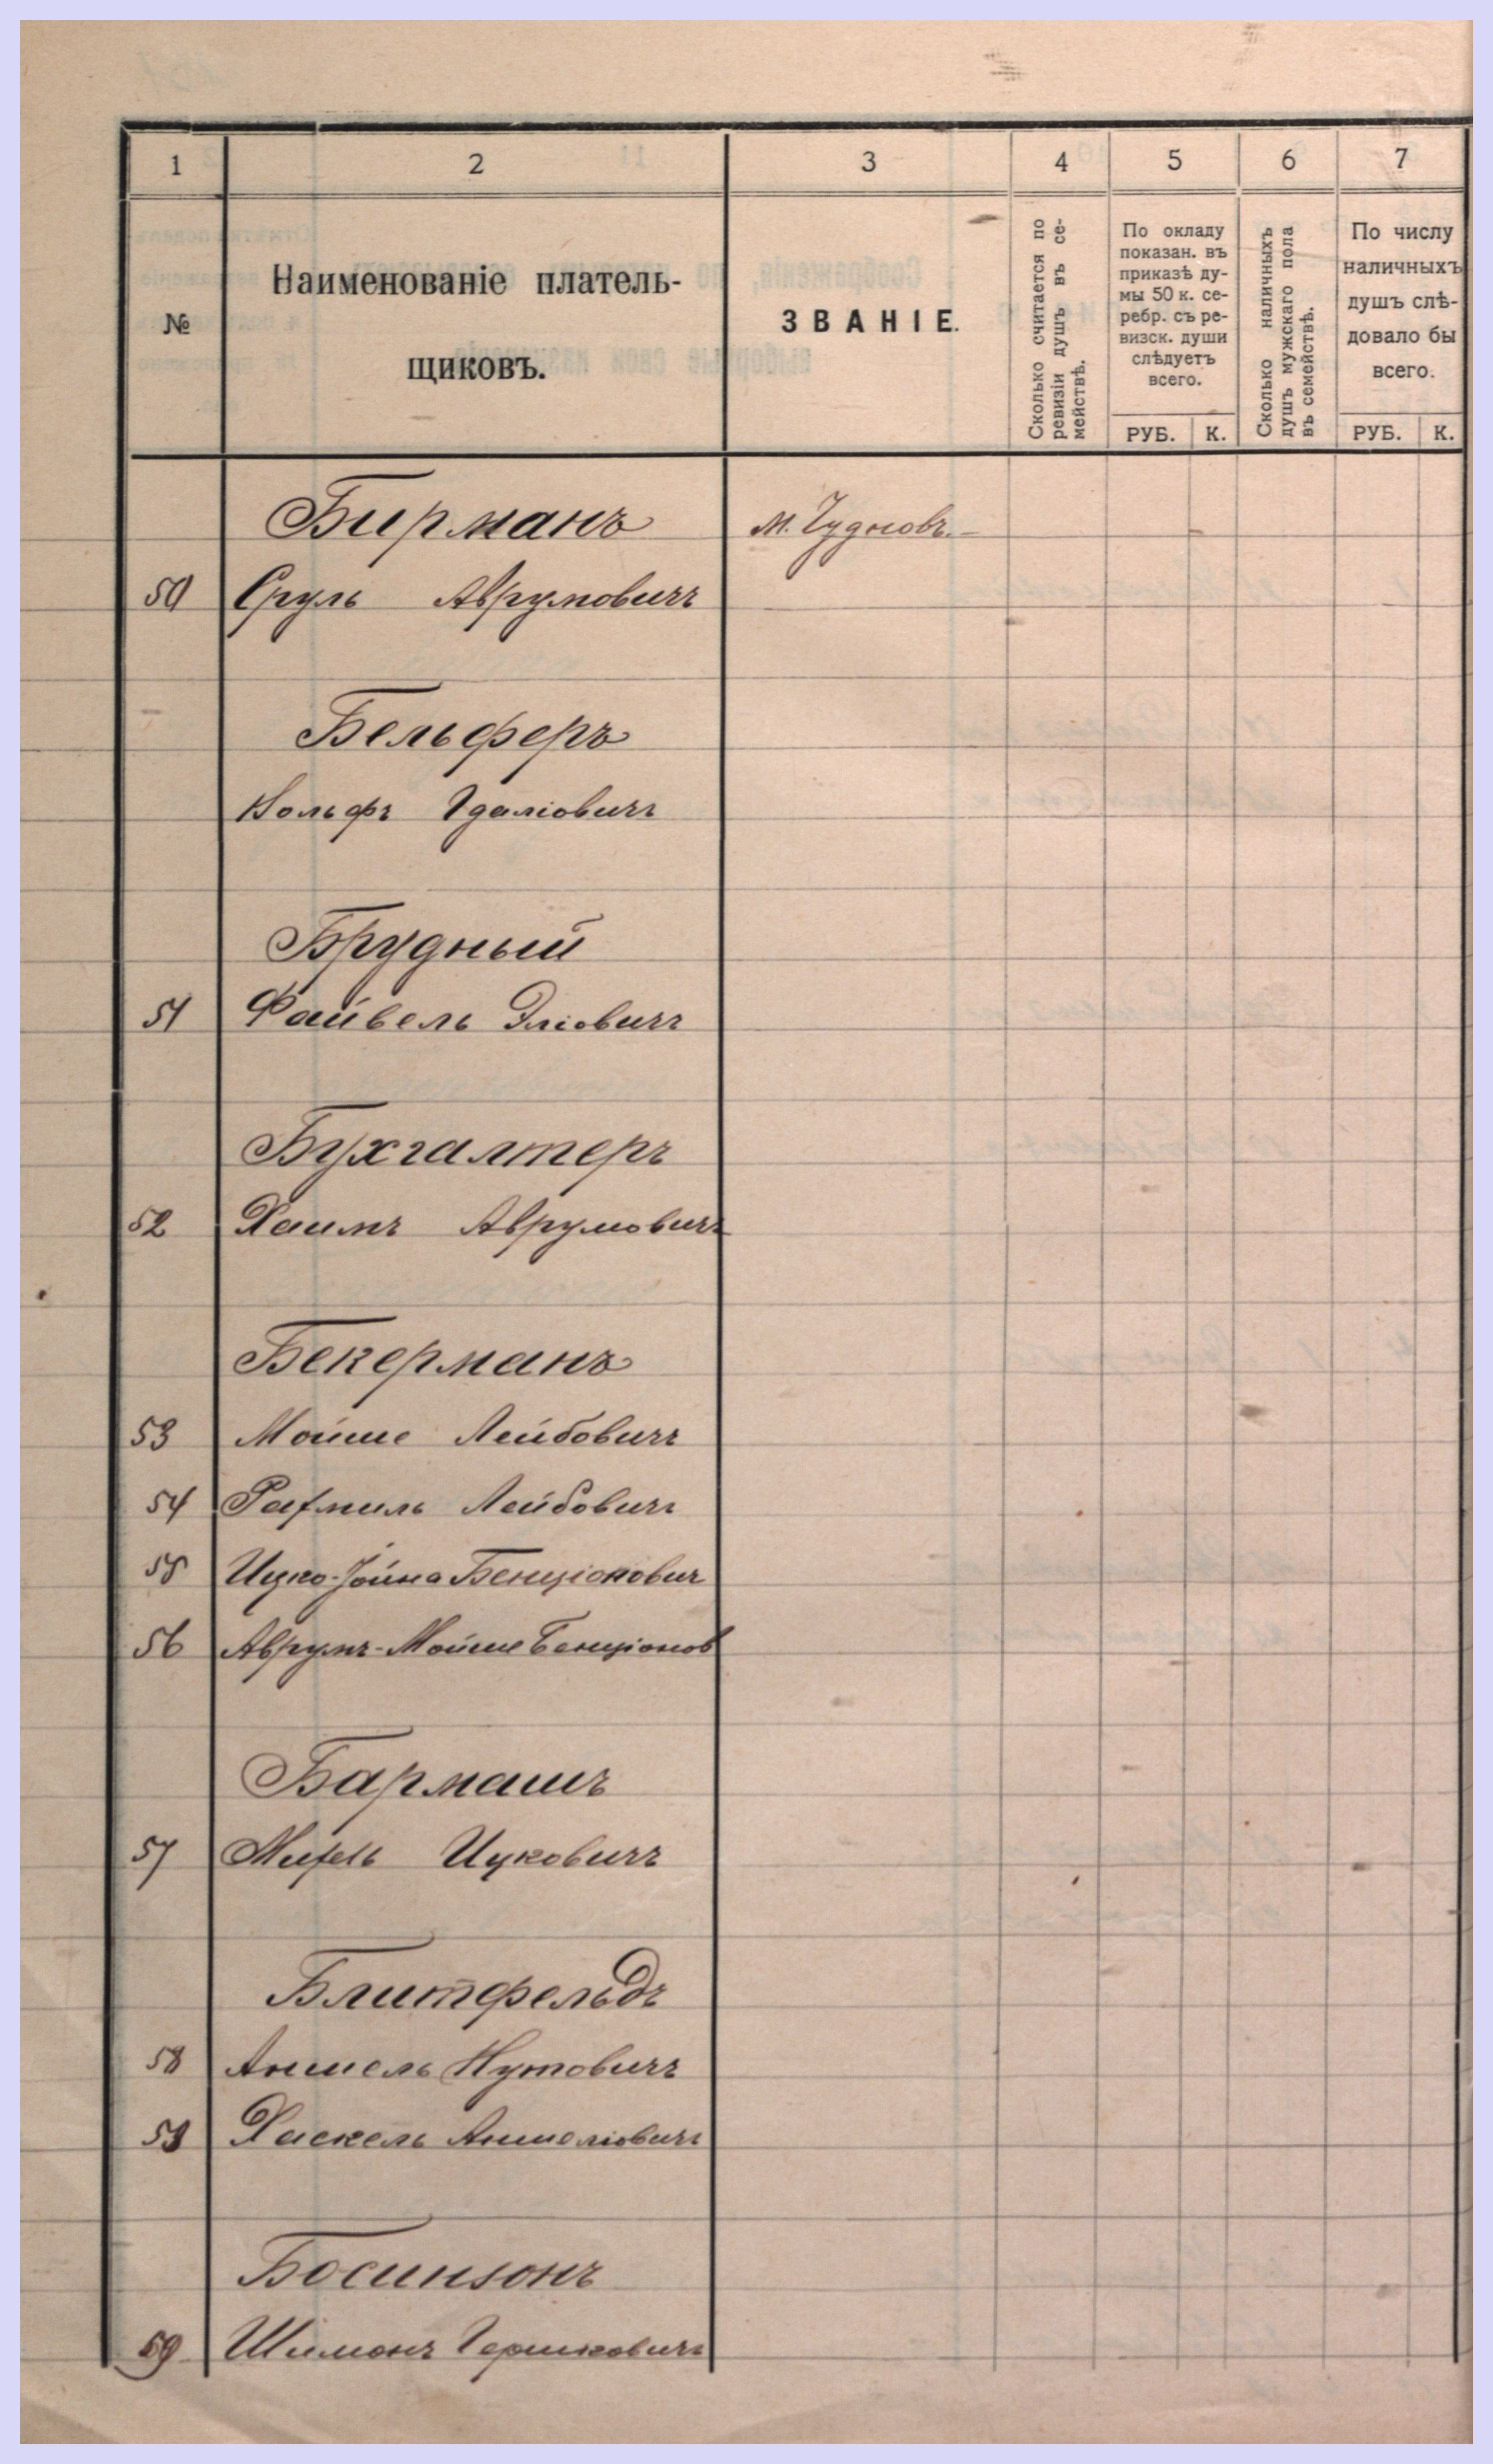 1 2 3 4 5 6 7
№
Наименованіе платель-
щиковъ.
ЗВАНІЕ.
Сколько считается по
ревизіи душъ въ се-
мействѣ.
По окладу
показан. въ
приказѣ ду-
мы 50 к. се-
ребр. съ ре-
визск. души
слѣдуетъ
всего.
РУБ. К.
Сколько наличныхъ
душъ мужскаго пола
въ семействѣ.
По числу
наличныхъ
душъ слѣ-
довало бы
всего.
РУБ. К.
Бирманъ м. Чудновъ.
50 Сруль Аврумовичъ
Бельферъ
Вольфъ Гдаліовичъ
Брудный
51 Файвель Эліовичъ
Бухгалтеръ
52 Хаимъ Аврумовичъ
Бекерманъ
53 Мойше Лейбовичъ
54 Рахмиль Лейбовичъ
55 Ицко-Іойна Бенціонович
56 Аврумъ-Мойше Бенціонов
Бармашъ
57 Михель Ицковичъ
Блитфельдъ
58 Аншель Нутовичъ
Хаскель Аншеліовичъ
Босинзонъ
59 Шимонъ Гершковичъ